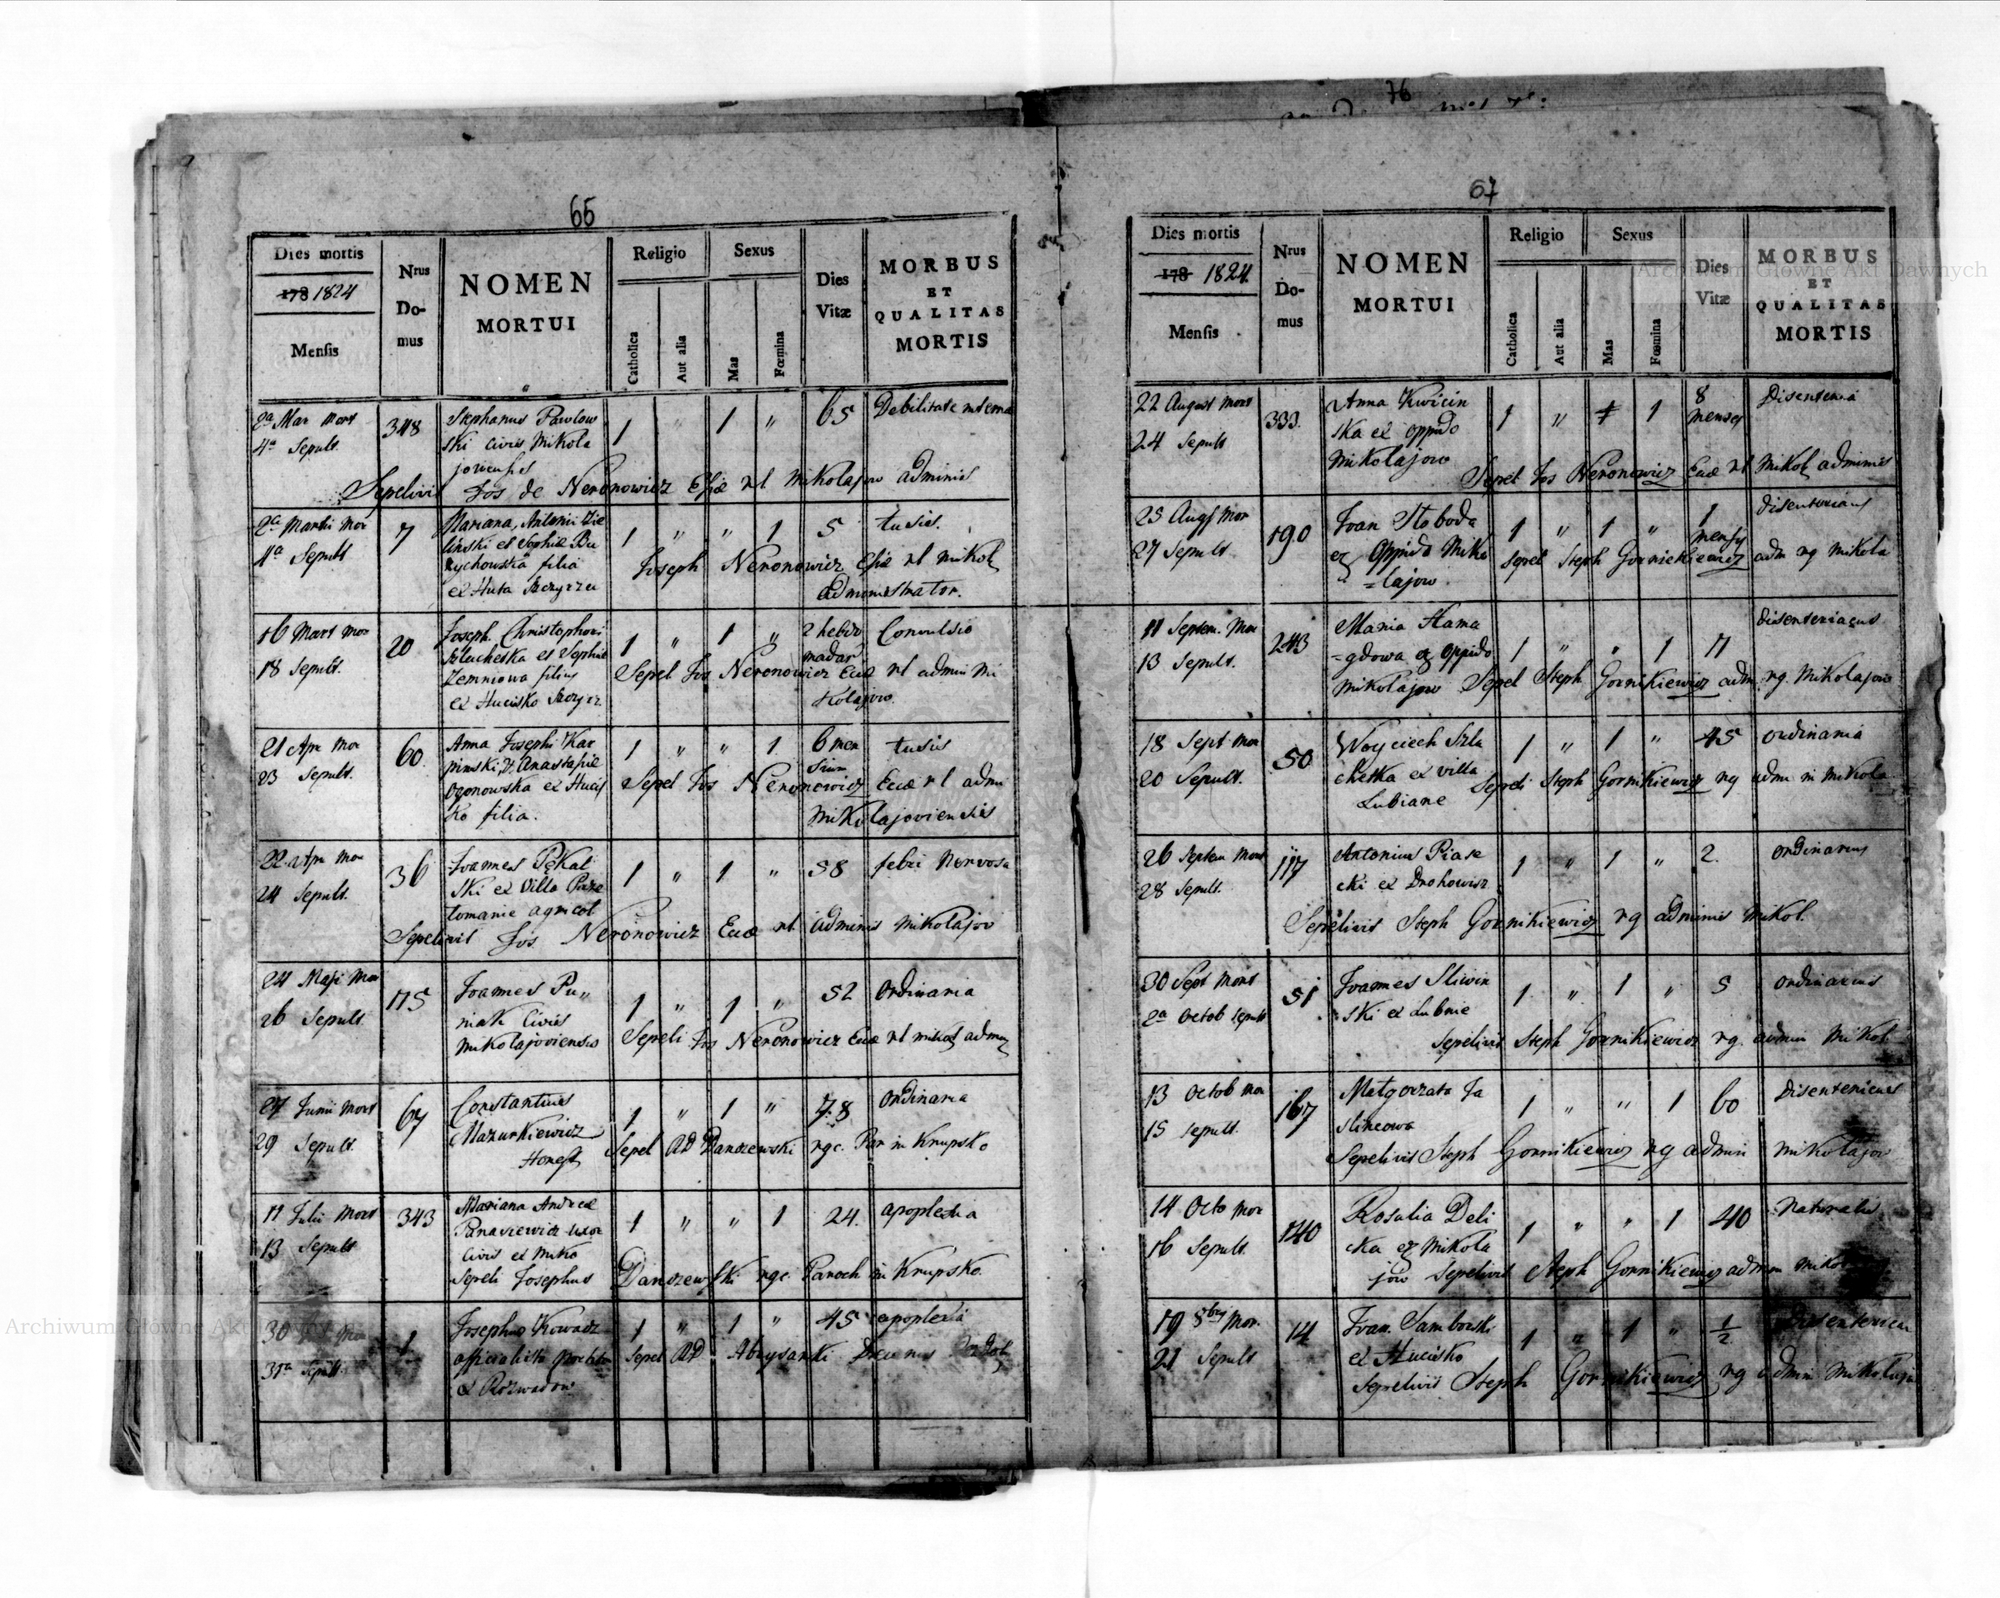 76
66
Dies mortis
178 1824
Mensis
Nrus
Do-
mus
NOMEN
MORTUI
Religio
Catholica
Aut alia
Sexus
Mas
Fœmina
Dies
Vitæ
MORBUS
ET
QUALITAS
MORTIS
2a Mar Mort
4a Sepult.
348
Stephanus Pawlow
ski civis Mikola
joviensis
1 „ 1 „ 65
Debilitate interna
Sepelivit Jos de Neronowicz Eccliæ rl Mikolajow adminis
2a Martii Mor
4a Sepult
7
Mariana, Antonii Zie
linski et Sophiæ Bu
rychowska filia
ex Huta Szczyrzec
1 „ „ 1 5
tussis.
Joseph Neronowicz Eccliæ rl Mikol
administrator.
16 Mart Mor
18 Sepult.
20
Joseph. Christophori
Szlachetka et Sophiæ
filius
ex Hucisko Szczyrz
1 „ 1 „
2 hebdo
madar
Convulsio
Sepel Jos Neronowicz Eccæ rl admin Mi
kolajow.
21 Apr Mor
23 Sepult.
60
Anna Josephi Kar
pinski, et Anastasiæ
Ozonowska ex Hucis
ko filia.
1 „ „ 1
6 men
sium
tussis
Sepel Jos Neronowicz Eccæ rl admi
Mikolajoviensis
22 Apr Mor
24 Sepult.
36
Joannes Pękal
ski ex villa
agricol
1 „ 1 „ 58
febri Nervosa
Sepelivit Jos Neronowicz Eccæ rl adminis Mikolajov
24 Maji Mor
26 Sepult.
175
Joannes Pu„
niak Civis
Mikolajoviensis
1 „ 1 „ 52
ordinaria
Sepeli Jos Neronowicz Eccæ rl mikol admin
27 Junii Mort
29 Sepult.
67
Constantinus
Mazurkiewicz
Honest
1 „ 1 „ 78
ordinaria
Sepel AD Danszewski rgc. Par in Krupsko
11 Julii Mort
13 Sepult
343
Mariana Andreæ
Panasiewicz uxor
Civis ex Miko
1 „ „ 1 24.
apoplexia
Sepeli Josephus Danszewski rgc. Paroch in Krupsko
30
31a Sepult.
1
Josephus Kowacz
officialista
ex Rozwadow
1 „ 1 „ 45
apoplexia
Sepel AD
67
Dies mortis
178 1824.
Mensis
Nrus
Do-
mus
NOMEN
MORTUI
Religio
Catholica
Aut alia
Sexus
Mas
Fœmina
Dies
Vitæ
MORBUS
ET
QUALITAS
MORTIS
22 August Mort
24 Sepult
333.
Anna Kwicin
ska ex oppido
Mikolajow
1 „ 1 1
8
menses
Disenteria
Sepel Jos Neronowicz Eccæ rl Mikol adminis
25 Aug Mor
27 Sepult
190
Joan Sloboda
ex Oppido Miko
=lajow.
1 „ 1 „
1
mensis
disenterianus
Sepel Steph Gornickiewicz adm rg Mikola
11 Septem. Mor
13 Sepult.
243
Maria Hama
=gdowa ex oppido
Mikolajow
1 „ „ 1 11
disenteriacus
Sepel Steph Gornikiewicz adm. rg. Mikolajow
18 Sept Mor
20 Sepult.
50
Woyciech Szla
chetka ex villa
Lubiane
1 „ 1 „ 45
ordinaria
Sepeli Steph Gornikiewicz rg admi in Mikola
26 Septem Mort
28 Sepult.
117
Antonius Piase
cki ex Drohowicz
1 „ 1 „ 2.
ordinarius
Sepelivit Steph Gornikiewicz rg adminis Mikol.
30 Sept Mort
2a Octob Sepult
51
Joannes Sliwin
ski ex Lubnie
1 „ 1 „ 5
ordinarius
Sepelivit Steph Gornikiewicz rg. admin Mikol
13 Octob Mor
15 Sepult.
167
Małgorzata Ja
slincowa
1 „ „ 1 60
disentericus
Sepelivit Steph Gornikiewicz rg admin Mikolajow
14 Octo Mor
16 Sepult.
140
Rosalia Deli
cka ex Mikola
jow
1 „ „ 1 40
Naturalis
Sepelivit Steph Gornikiewicz admin Mikol
19 8bris Mor.
21 Sepult
14
Joan. Samborski
ex Hucisko
1 „ 1 „ 1/2
Disenteria
Sepelivit Steph Gornikiewicz rg admin Mikolaja
Archiwum Główne Akt Dawnych
Archiwum Główne Akt Dawnych